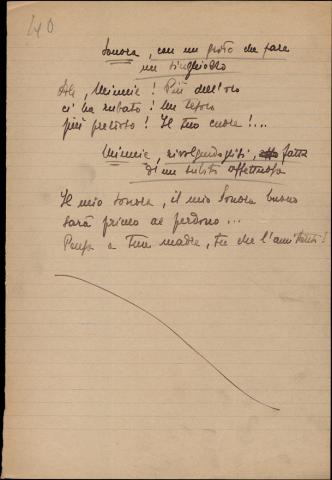 40
Sonora, con un grido che pare
un singhiozzo
Ah, Minnie! Più dell'oro
ci ha rubato! Un tesoro
più prezioso! Il tuo cuore!...
Minnie, rivolgendoglisi, fatta
di un subito affettuosa
Il mio Sonora, il mio Sonora buono
sarà primo al perdono...
Pensa a tua madre, tu che l'ami tanto!